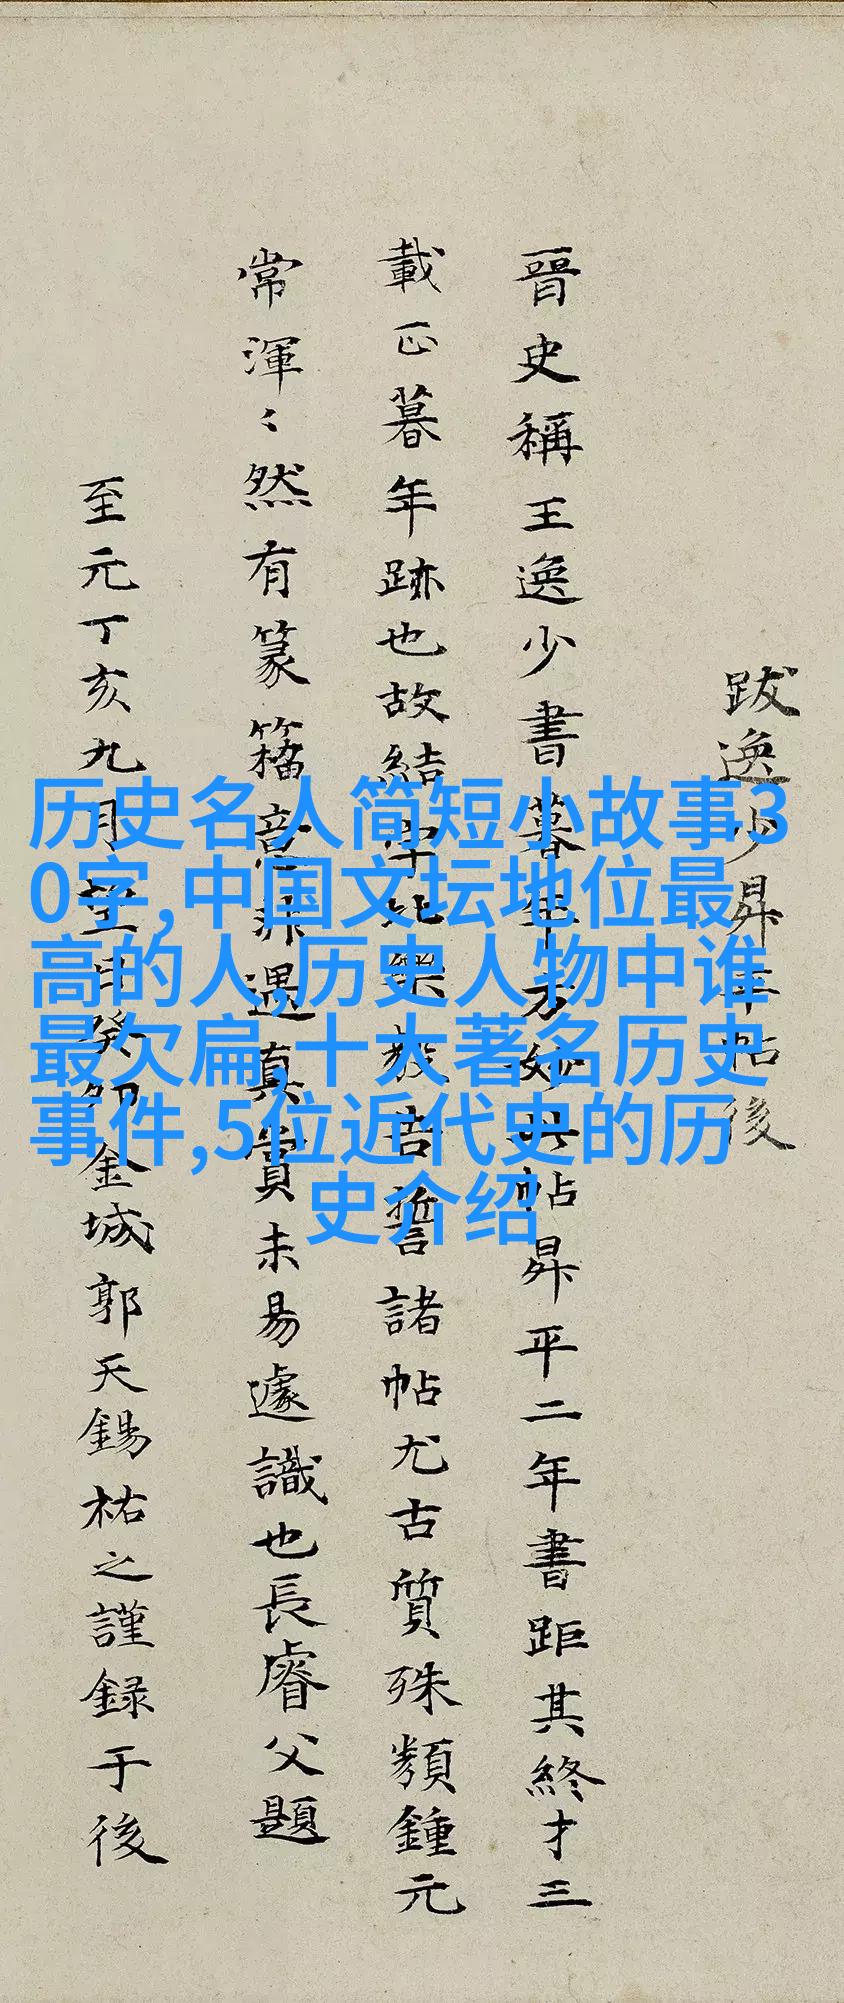 跋逸少昇平帖後
晉史稱王逸少書暮年方妙此帖昇平二年書距其終才三
載正暮年跡也故結字比樂毅告誓諸帖尤古質殊類鍾元
常渾〻然有篆籀意非遇真賞未易遽識也長睿父題
至元丁亥九月望日癸卯金城郭天錫祐之謹録于後
历史名人简短小故事3
0字,中国文坛地位最
高的人,历史人物中谁
最欠扁,十大著名历史
事件,5位近代史的历
史介绍